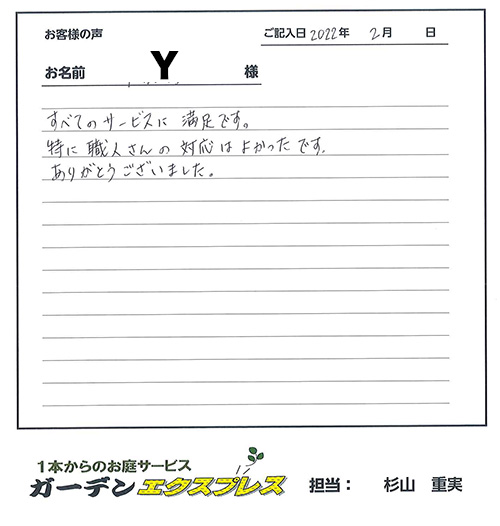 お客様の声
ご記入日 2022年 2月 日
お名前 Y 様
すべてのサービスに満足です。
特に職人さんの対応はよかったです.
ありがとうございました。
1本からのお庭サービス
ガーデンエクスプレス 担当： 杉山 重実